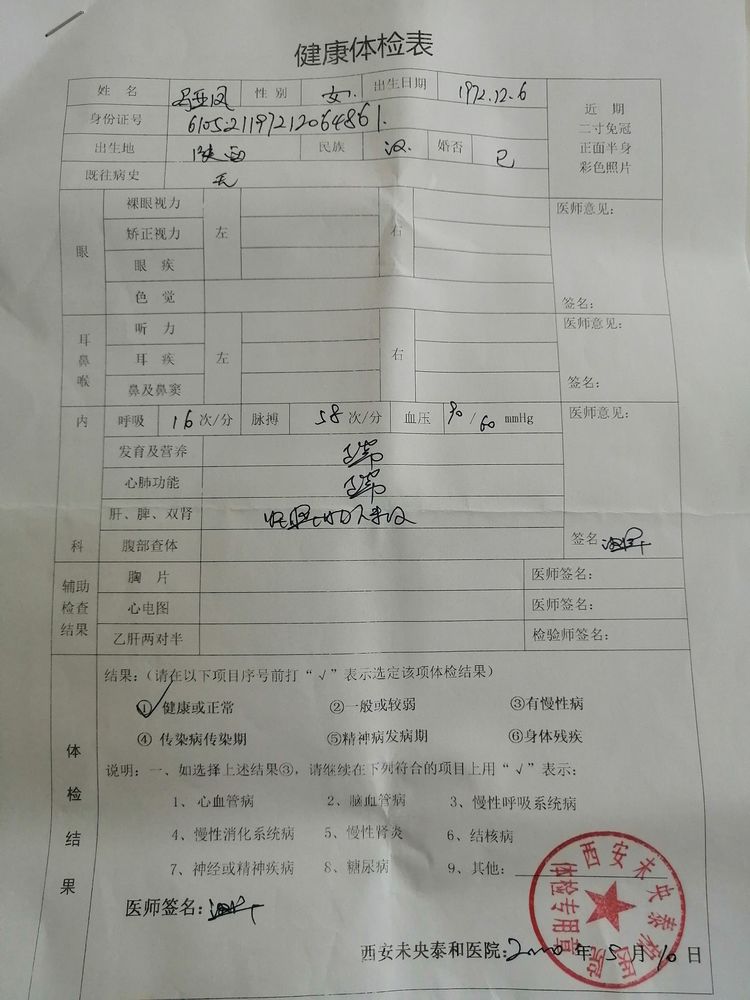 健康体检表
姓名 吕亚凤 性别 女. 出生日期 1972.12.6
身份证号 610521197212064861.
出生地 陕西 民族 汉. 婚否 已
既往病史 无
近期
二寸免冠
正面半身
彩色照片
眼
裸眼视力
矫正视力 左 右
眼疾
色觉
医师意见:
签名:
耳鼻喉
听力
耳疾 左 右
鼻及鼻窦
医师意见:
签名:
内科
呼吸 16次/分 脉搏 58次/分 血压 90/60 mmHg
发育及营养 正常
心肺功能 正常
肝、脾、双肾
腹部查体
医师意见:
签名
辅助检查结果
胸片 医师签名:
心电图 医师签名:
乙肝两对半 检验师签名:
体检结果
结果:(请在以下项目序号前打“√”表示选定该项体检结果)
①√健康或正常 ②一般或较弱 ③有慢性病
④传染病传染期 ⑤精神病发病期 ⑥身体残疾
说明:一、如选择上述结果③,请继续在下列符合的项目上用“√”表示:
1、心血管病 2、脑血管病 3、慢性呼吸系统病
4、慢性消化系统病 5、慢性肾炎 6、结核病
7、神经或精神疾病 8、糖尿病 9、其他:
医师签名:
西安未央泰和医院
体检专用章
西安未央泰和医院: 年 5月10日